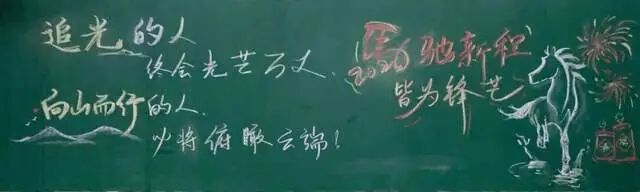 追光的人
终会光芒万丈、
向山而行的人、
必将俯瞰云端！
馬驰新程
2026
皆为锋芒